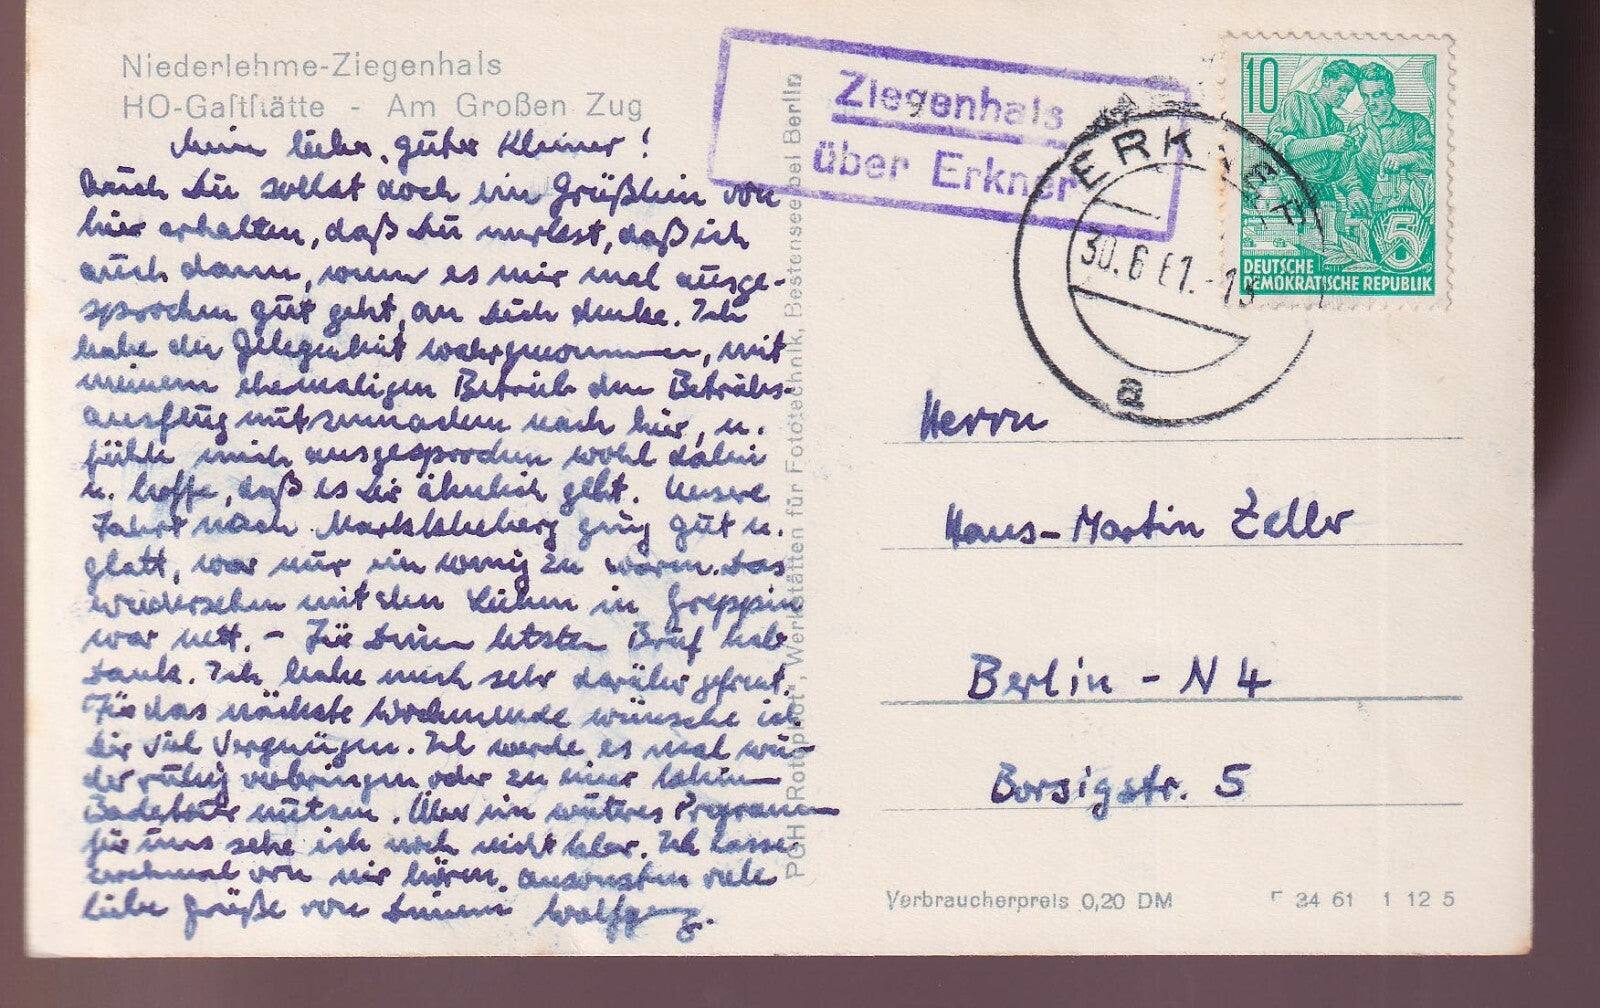 Niederlehme-Ziegenhals
HO-Gaſtſtätte - Am Großen Zug
Mein lieber, guter Kleiner!
Auch Du sollst doch ein Grüßlein von
hier erhalten, daß Du merkst, daß ich
auch dann, wenn es mir mal ausge-
sprochen gut geht, an Dich denke. Ich
habe die Gelegenheit wahrgenommen, mit
meinem ehemaligen Betrieb den Betriebs-
ausflug mitzumachen nach hier, u.
fühle mich ausgesprochen wohl dabei
u. hoffe, daß es Dir ähnlich geht. Unsere
Fahrt nach Markkleeberg ging gut u.
glatt, war nur ein wenig zu warm. Das
Wiedersehen mit den Lieben in Greppin
war nett. - Für Deinen letzten Brief hab
Dank. Ich habe mich sehr darüber gefreut.
Für das nächste Wochenende wünsche ich
Dir viel Vergnügen. Ich werde es mal wie-
der ruhig verbringen oder zu einer
Badetour nutzen. Über ein weiteres Programm
für uns sehe ich noch nicht klar. Ich lasse
nochmal von mir hören. Ansonsten viele
liebe Grüße von Deinem Wolfgang.
PGH "Rotophot", Werkstätten für Fototechnik, Bestensee bei Berlin
Ziegenhals
über Erkner
ERKNER
30.6.61.-13
a
10
5
DEUTSCHE
DEMOKRATISCHE REPUBLIK
Herrn
Hans-Martin Zeller
Berlin - N 4
Borsigstr. 5
Verbraucherpreis 0,20 DM
F 34 61 1 12 5